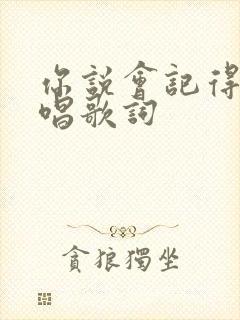 你說會記得
唱歌詞
貪狼獨坐